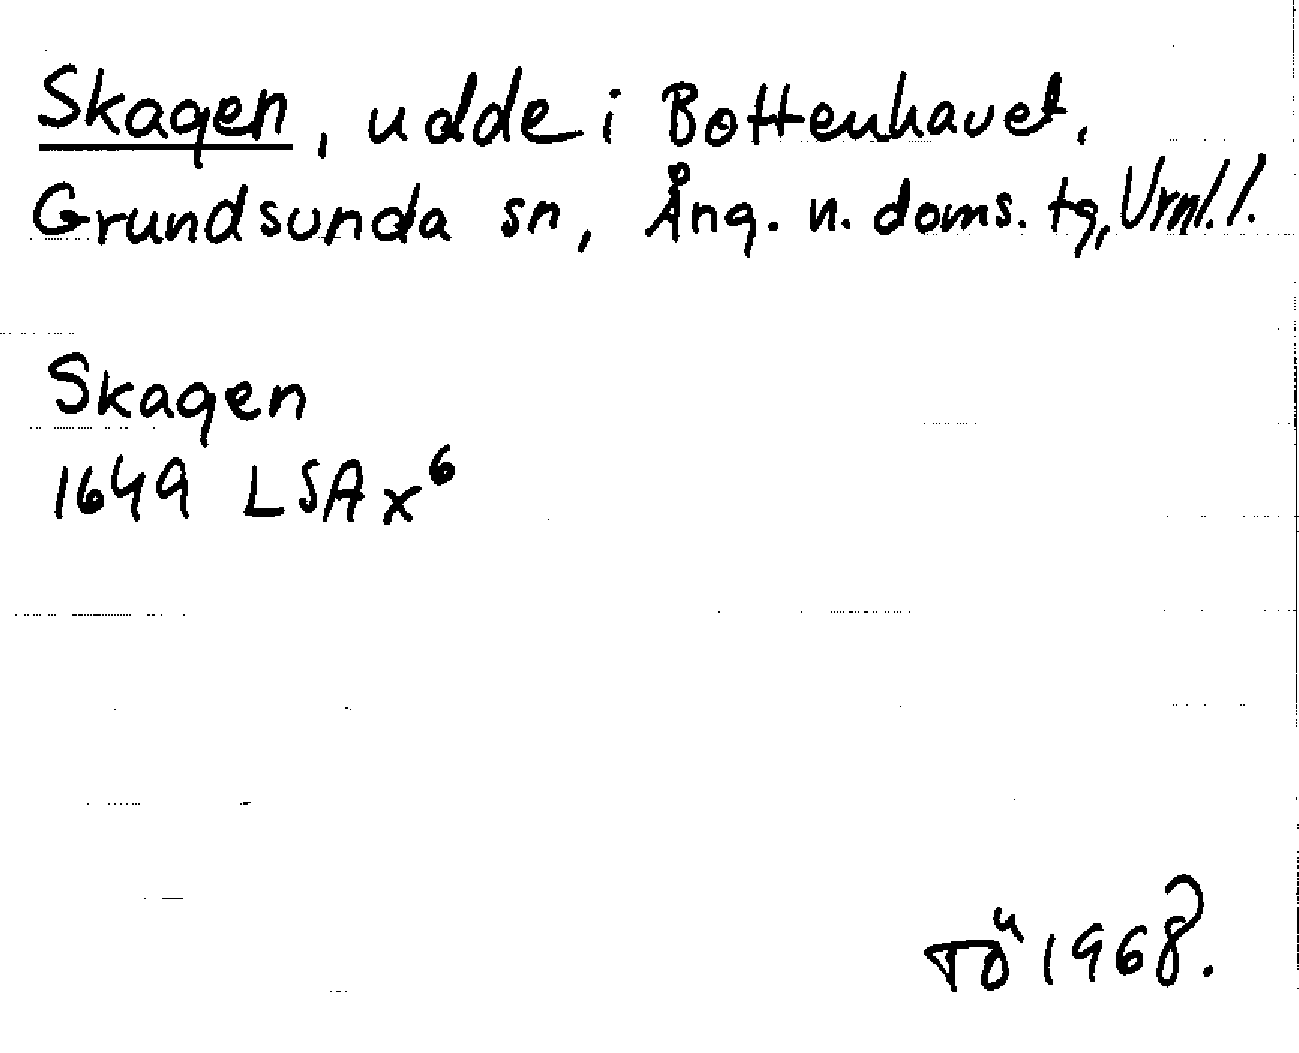 Skagen, udde i Bottenhavet,
Grundsunda sn, Ång. n. doms. tg, Vrnl. l.
Skagen
1649 LSA x⁶
TÖ 1968.